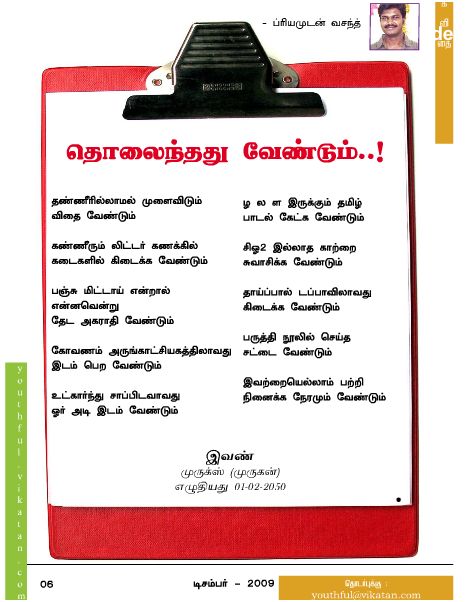 - ப்ரியமுடன் வசந்த்
க
வி
de
தை
தொலைந்தது வேண்டும்..!
தண்ணீரில்லாமல் முளைவிடும்
விதை வேண்டும்
கண்ணீரும் லிட்டர் கணக்கில்
கடைகளில் கிடைக்க வேண்டும்
பஞ்சு மிட்டாய் என்றால்
என்னவென்று
தேட அகராதி வேண்டும்
கோவணம் அருங்காட்சியகத்திலாவது
இடம் பெற வேண்டும்
உட்கார்ந்து சாப்பிடவாவது
ஓர் அடி இடம் வேண்டும்
ழ ல ள இருக்கும் தமிழ்
பாடல் கேட்க வேண்டும்
சிஓ2 இல்லாத காற்றை
சுவாசிக்க வேண்டும்
தாய்ப்பால் டப்பாவிலாவது
கிடைக்க வேண்டும்
பருத்தி நூலில் செய்த
சட்டை வேண்டும்
இவற்றையெல்லாம் பற்றி
நினைக்க நேரமும் வேண்டும்
இவண்
முருக்ஸ் (முருகன்)
எழுதியது 01-02-2050
youthful.vikatan.com
06
டிசம்பர் - 2009
தொடர்புக்கு :
youthful@vikatan.com